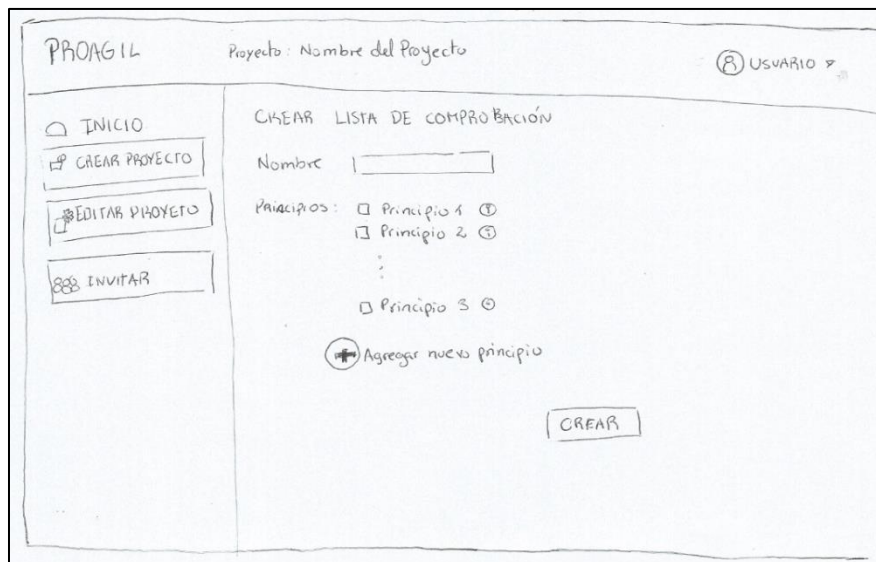 PROAGIL
Proyecto: Nombre del Proyecto
USUARIO
INICIO
CREAR PROYECTO
EDITAR PROYETO
INVITAR
CREAR LISTA DE COMPROBACIÓN
Nombre
Principios:
Principio 1
Principio 2
Principio 3
Agregar nuevo principio
CREAR